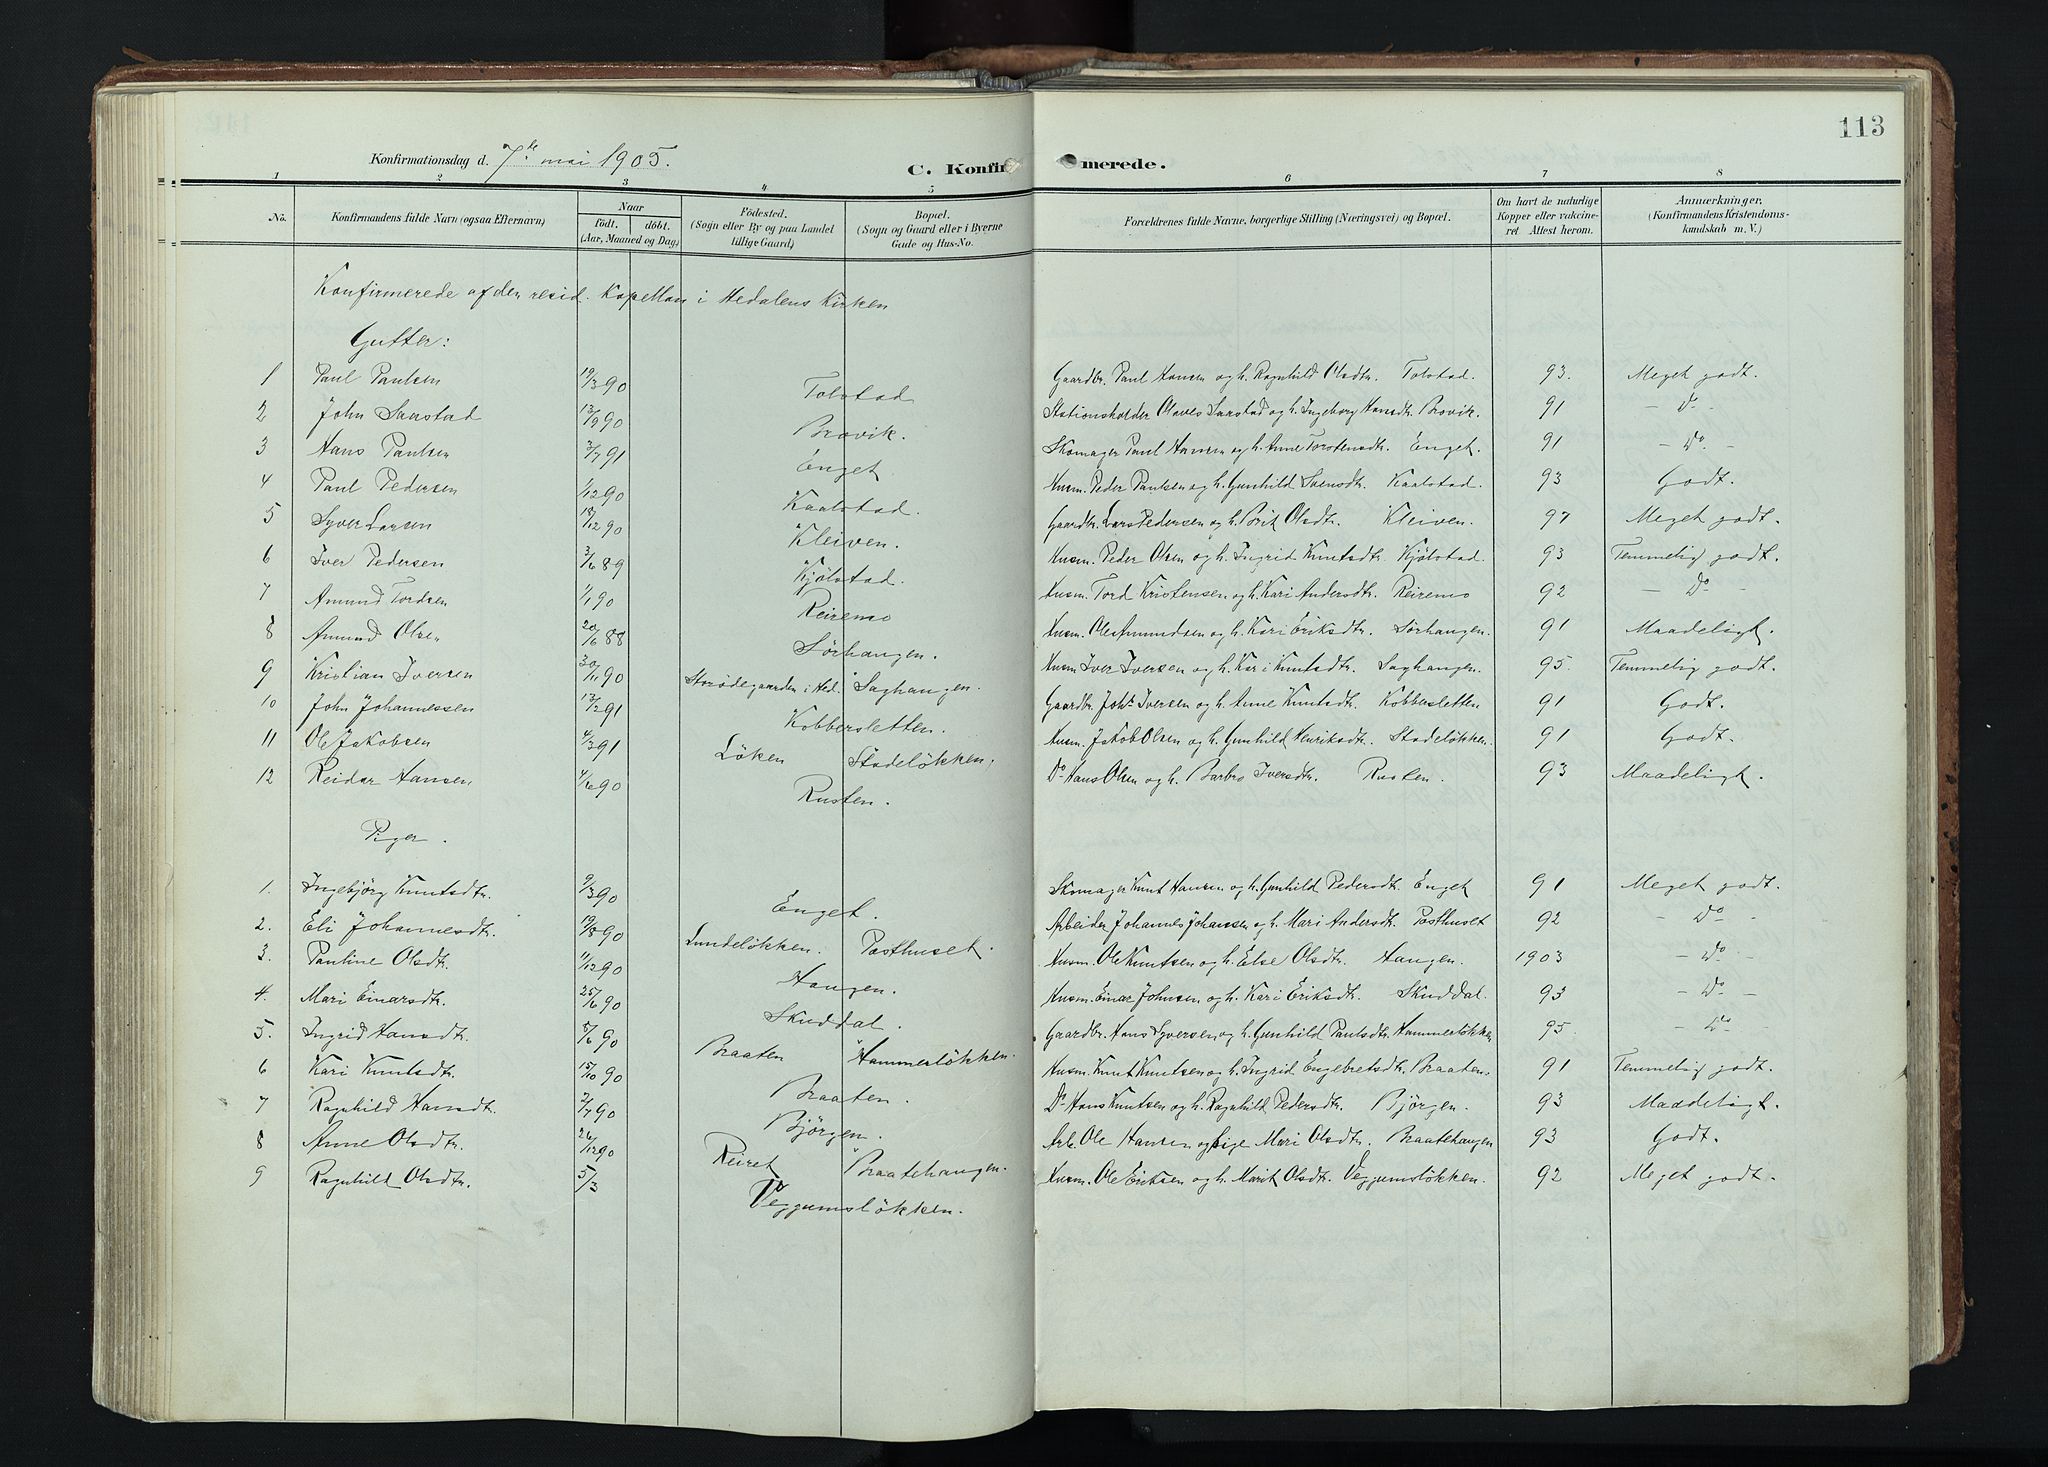 113
Konfirmationsdag d. 7de mai 1905.
C. Konfirmerede.
1 2 3 4 5 6 7 8
No. Konfirmandens fulde Navn (ogsaa Efternavn) Naar født. døbt. (Aar, Maaned og Dag) Fødested. (Sogn eller By og paa Landet tillige Gaard) Bopæl. (Sogn og Gaard eller i Byerne Gade og Hus-No. Forældrenes fulde Navne, borgerlige Stilling (Næringsvei) og Bopæl. Om havt de naturlige Kopper eller vakcineret. Attest herom. Anmærkninger, (Konfirmandens Kristendomskundskab m. V.)
Konfirmerede af den resid. Kapellan i Hedalens Kirken
Gutter:
1 Paul Paulsen 19/3 90 Tolstad Gaardbr. Paul Hansen og h. Ragnhild Olsdtr. Tolstad. 93. Meget godt.
2 John Saastad 13/9 90 Brovik. Stationsholder Olaves Saastad og h. Ingeborg Hansdtr. Brovik. 91 – Do –
3 Hans Paulsen 3/7 91 Enget Skomager Paul Hansen og h. Anne Torstensdtr. Enget. 91 – Do –
4 Paul Pedersen 1/12 90 Kaalstad. Husm. Peder Paulsen og h. Gunhild Svensdtr. Kaalstad. 93 Godt.
5 Syver Larsen 18/12 90 Kleiven. Gaardbr. Lars Pedersen og h. Brit Olsdtr. Kleiven. 97 Meget godt.
6 Iver Pedersen 3/6 89 Kjølstad. Husm. Peder Olsen og h. Ingrid Knutsdtr. Kjølstad. 93 Temmelig godt.
7 Amund Tordsen 1/1 90 Reiremo Husm. Tord Kristensen og h. Kari Andersdtr. Reiremo 92 – Do –
8 Amund Olsen 20/6 88 Sørhangen. Husm. Ole Amundsen og h. Kari Eriksdtr. Sørhangen. 91 Maadeligt.
9 Kristian Iversen 30/11 90 Storødegaarden i Hed. Saghangen. Husm Iver Iversen og h. Kari Knutsdtr. Saghangen. 95. Temmelig godt.
10 John Johannessen 13/2 91 Kobbersletten. Gaardbr. Johs Iversen og h. Anne Knutsdtr. Kobbersletten 91 Godt.
11 Ole Jakobsen 4/3 91 Løken Stadeløkken. Husm. Jakob Olsen og h. Gunhild Henriksdtr. Stadeløkken. 91 Godt.
12 Reidar Hansen 4/6 90 Rusten. Do Hans Olsen og h. Barbro Iversdtr. Rusten. 93 Maadeligt.
Piger.
1. Ingebjörg Knutsdtr. 9/3 90 Enget. Skomager Knut Hansen og h. Gunhild Pedersdtr. Enget 91 Meget godt.
2. Eli Johannesdtr. 19/8 90 Lundeløkken. Posthuset. Arbeider Johannes Johansen og h. Mari Andersdtr. Posthuset 92 – Do –
3. Pauline Olsdtr. 11/12 90 Haugen. Husm. Ole Knutsen og h. Else Olsdtr. Haugen. 1903 – Do –
4. Mari Einarsdtr. 25/6 90 Skuddal. Husm. Einar Johnsen og h. Kari Eriksdtr. Skuddal. 93 – Do –
5. Ingrid Hansdtr. 5/6 90 Braaten Hammerløkken. Gaardbr. Hans Syversen og h. Gunhild Paulsdtr. Hammerløkken 95 – Do
6 Kari Knutsdtr. 15/10 90 Braaten. Husm. Knut Knutsen og h. Ingrid Engebretsdtr. Braaten. 91 Temmelig godt.
7 Ragnhild Hansdtr. 2/7 90 Bjørgen. Do Hans Knutsen og h. Ragnhild Pedersdtr. Bjørgen. 93 Maadeligt.
8 Anne Olsdtr. 26/12 90 Reiret Braatehaugen. Arb. Ole Hansen og Pige Mari Olsdtr. Braatehaugen 93 Godt.
9 Ragnhild Olsdtr. 5/3 Veggumsløkken. Husm. Ole Eriksen og h. Marit Olsdtr. Veggumsløkken. 92 Meget godt.